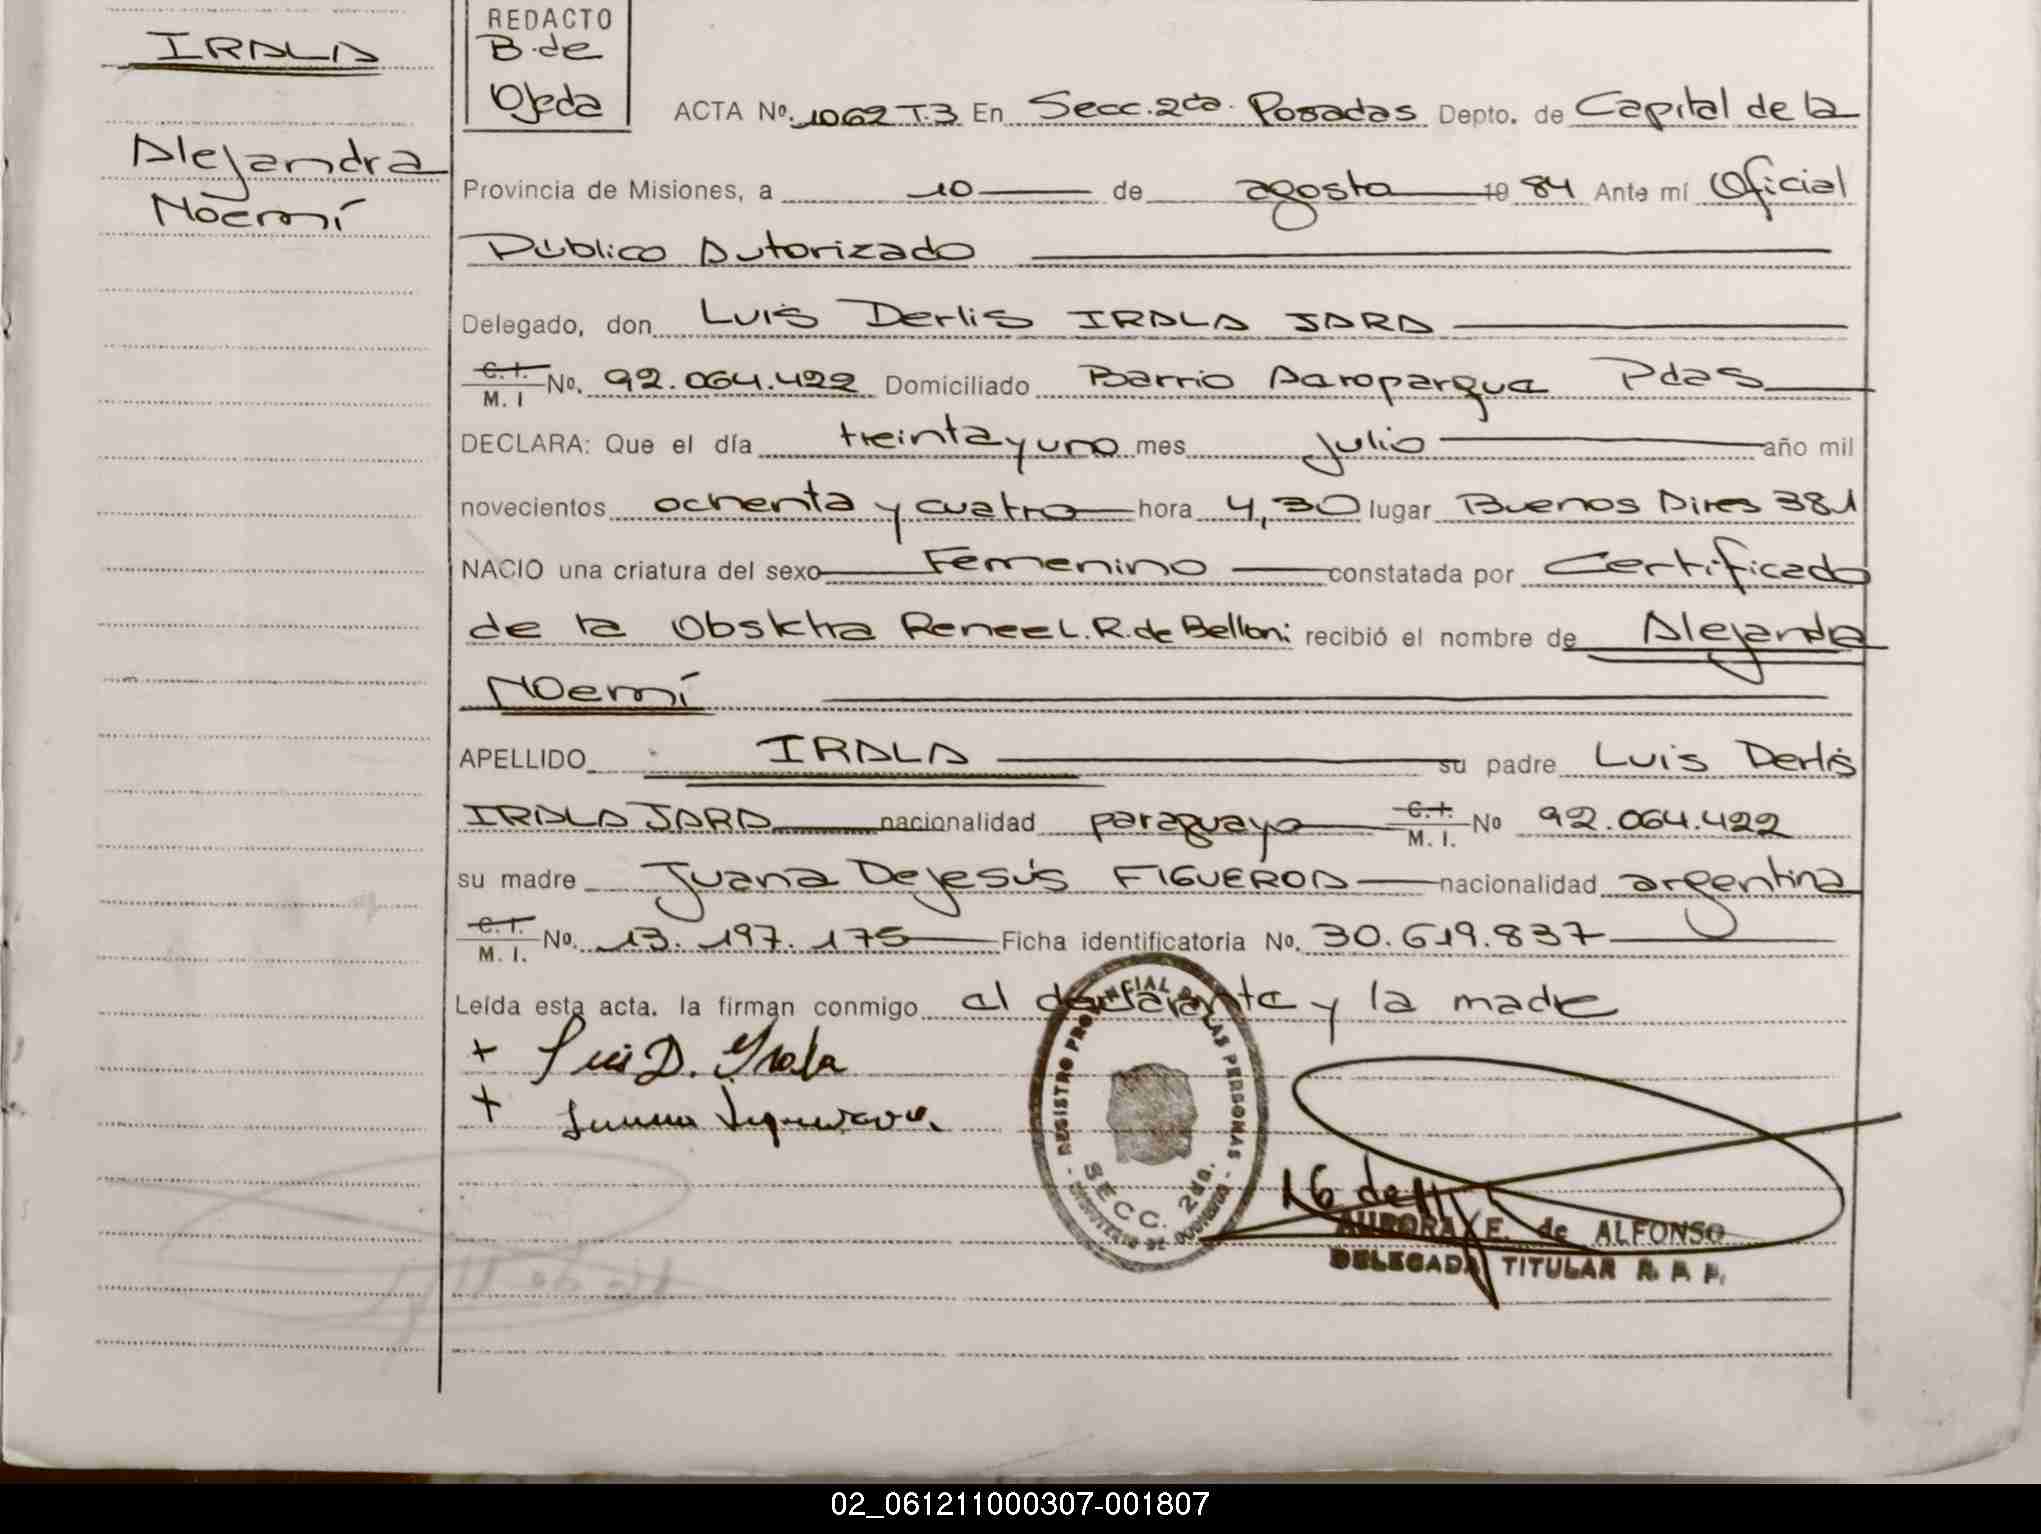 IRALA
Alejandra
Noemí
REDACTO
B. de
Ojeda
ACTA Nº. 1062 T.3 En Secc. 2da. Posadas Depto. de Capital de la
Provincia de Misiones, a 10 de agosto 19 84 Ante mí Oficial
Público Autorizado
Delegado, don Luis Derlis IRALA JARA
C. I. / M. I Nº. 92.064.422 Domiciliado Barrio Aaroparqua Pdas
DECLARA: Que el día treinta y uno mes julio año mil
novecientos ochenta y cuatro hora 4,30 lugar Buenos Aires 381
NACIO una criatura del sexo Femenino constatada por Certificado
de la Renee L. R. de Belloni recibió el nombre de Alejandra
Noemí
APELLIDO IRALA su padre Luis Derlis
IRALA JARA nacionalidad paraguayo C. I. / M. I. Nº 92.064.422
su madre Juana De Jesús FIGUEROA nacionalidad argentina
C. I. / M. I. Nº. 13.197.175 Ficha identificatoria Nº. 30.619.837
Leída esta acta, la firman conmigo el declarante y la madre
+ Luis D. Yrala
+
REGISTRO PROVINCIAL DE LAS PERSONAS
SECC. 2da.
16 de
AURORA E. de ALFONSO
DELEGADA TITULAR R. P. P.
02_061211000307-001807